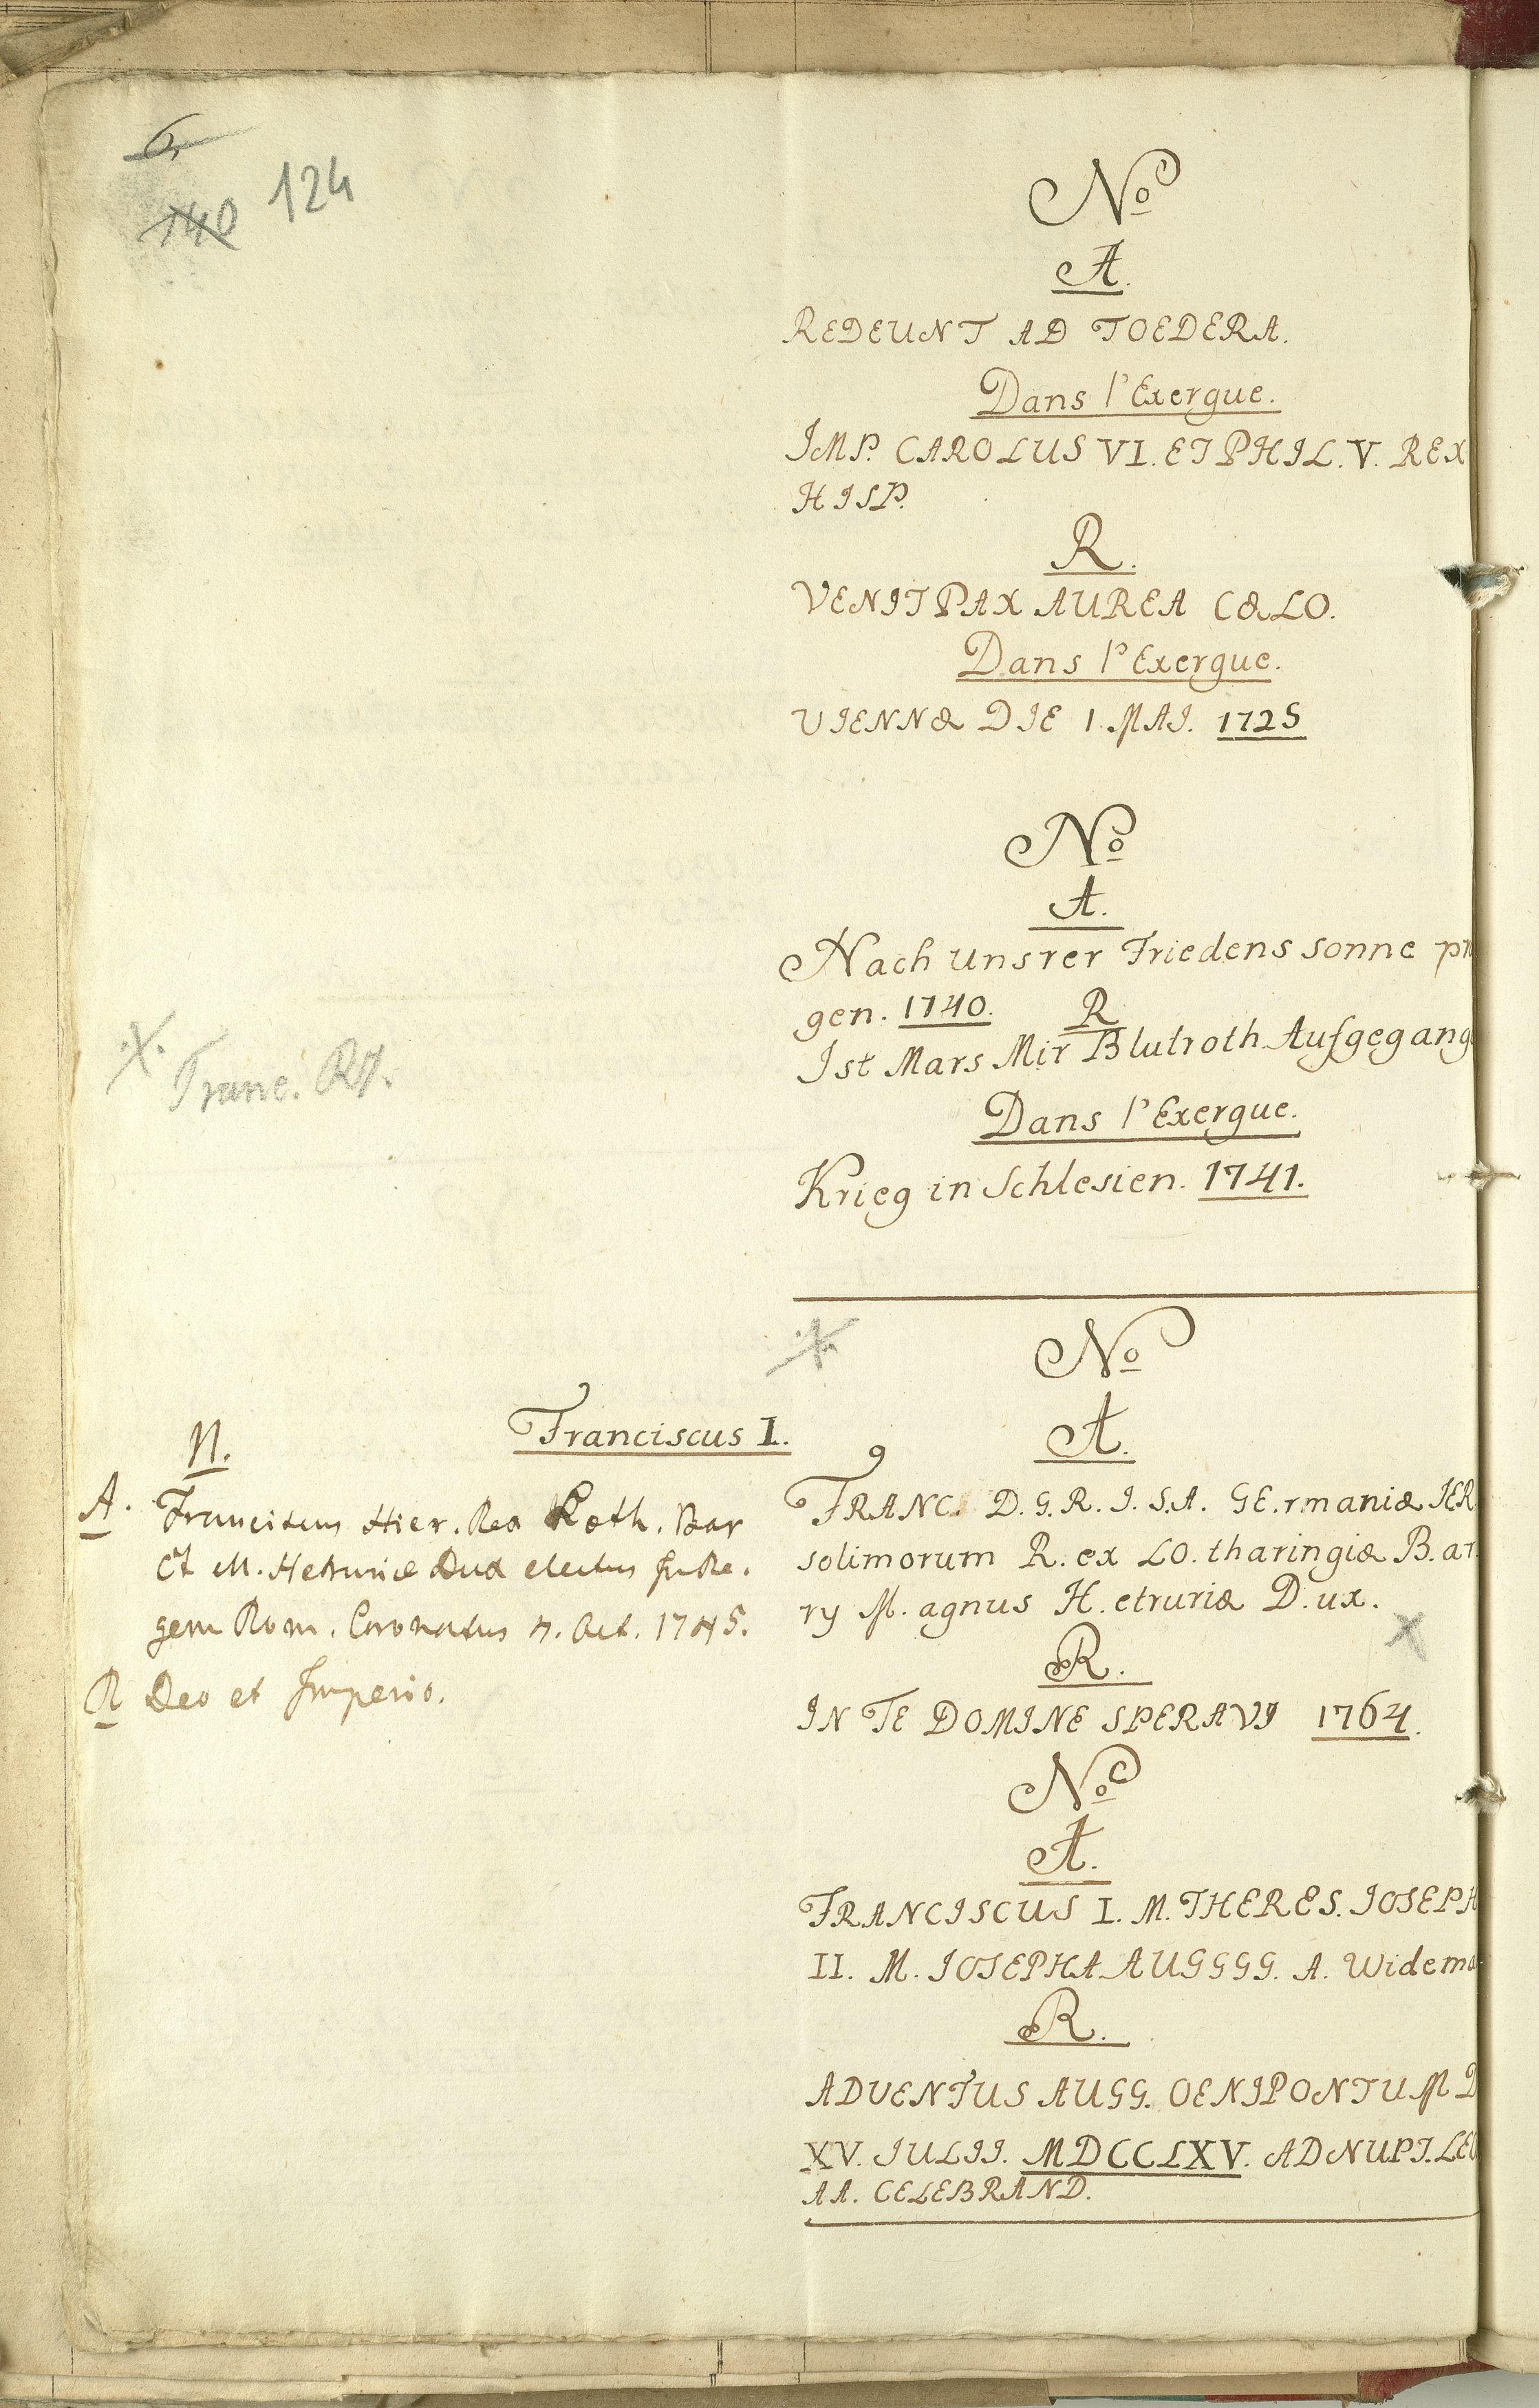 6,
140 124
No
A.
REDEUNT AD TOEDERA.
Dans l'Exergue.
IMP. CAROLUS VI. ET PHIL. V. REX
HISP.
R.
VENIT PAX AUREA CÆLO.
Dans l'Exergue.
VIENNÆ DIE 1. MAI. 1725
No
A.
Nach unsrer Friedens sonne
gen. 1740. R
Ist Mars Mir Blutroth Aufgegang
Dans l'Exergue.
Krieg in Schlesien. 1741.
Franc.
No
A.
Franciscus I.
FRANC. D. G. R. I. S. A. GE.rmaniæ IER
solimorum R. ex LO. tharingiæ B. ar
ry M. agnus H. etruriæ D. ux.
R.
IN TE DOMINE SPERAVI 1764.
N.
A. Franciscus Hier. Rex Loth. Bar
et M. Hetruriæ Dux electus in Re.
gem Rom. Coronatus 4. Oct. 1745.
R Deo et Imperio.
No
A.
FRANCISCUS I. M. THERES. IOSEPH
II. M. IOSEPHA AUGGGG. A. Widema
R.
ADVENTUS AUGG. OENIPONTUM D
XV. IULII. MDCCLXV. AD NUPT. LEO
AA. CELEBRAND.